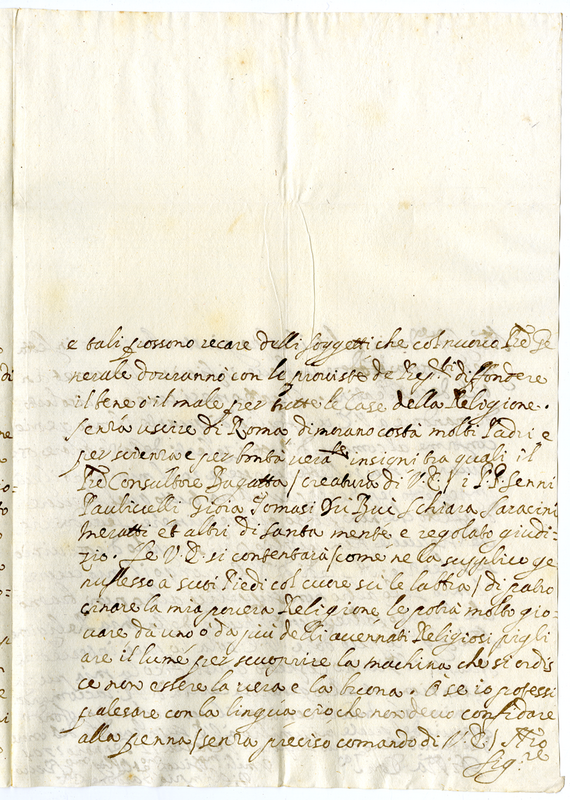 e tali possono recare delli soggetti che col nuovo Pre Ge
nerale dovranno con le proviste de diffondere
il bene o il male per tutte le Case della Religione.
senza uscire di Roma dimorano costà molti Padri e
per scienza e per bontà vera insigni tra quali il
Pre Consultore Bagatta / creatura di V. E. / i PP. Senni
Paulicelli Gioia Tomasi Schiara Saracini
Meratti et altri di santa mente e regolato giudi-
zio. Se V. E. si contentarà / come ne la supplico ge
nuflesso à suoi Piedi col cuore sù le labbia / di patro
cinare la mia povera Religione, le potrà molto gio-
vare da uno o da più delli accennati Religiosi pigli
are il lume per scuoprire la machina che si ordis
ce non essere la vera e la buona. O se io potessi
palesare con la lingua ciò che non devo confidare
alla penna / senza preciso comando di V. E. /
Sig.re